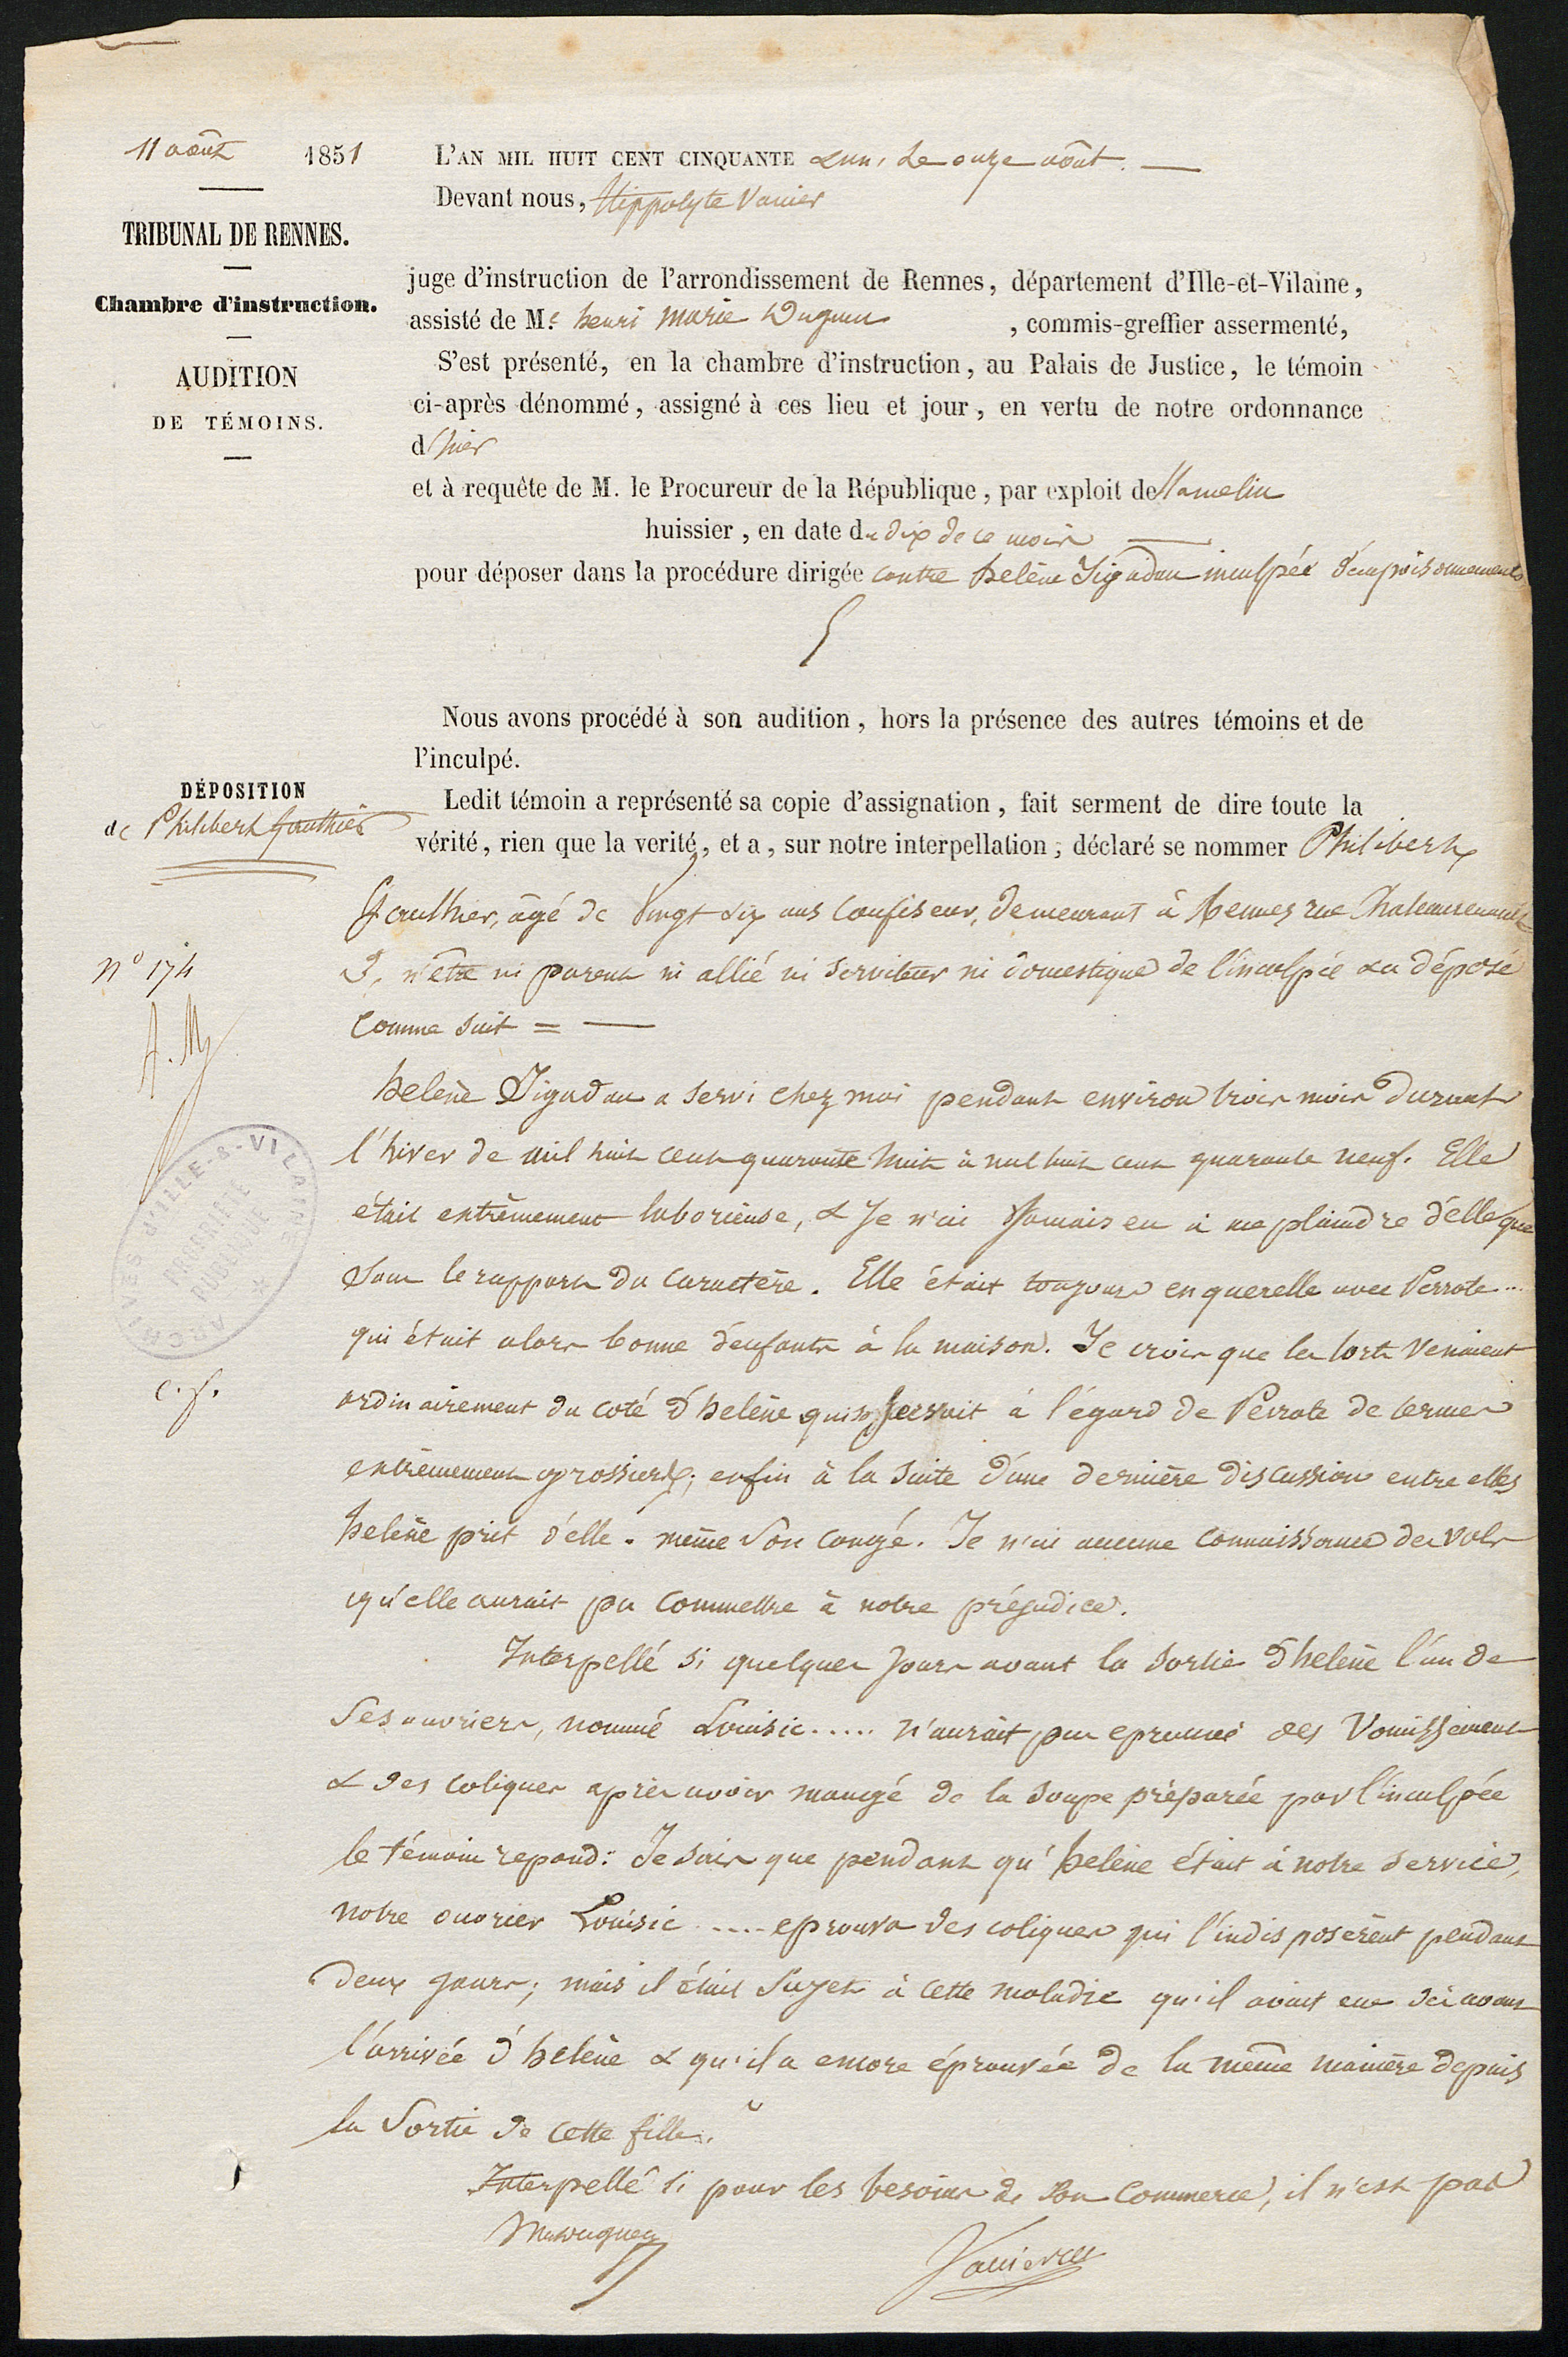 11 août 1851
TRIBUNAL DE RENNES.
Chambre d'instruction.
AUDITION
DE TÉMOINS.
L'AN MIL HUIT CENT CINQUANTE & un, le onze août.
Devant nous, Hippolyte Vanier
juge d'instruction de l'arrondissement de Rennes, département d'Ille-et-Vilaine,
assisté de Me henri Marie , commis-greffier assermenté,
S'est présenté, en la chambre d'instruction, au Palais de Justice, le témoin
ci-après dénommé, assigné à ces lieu et jour, en vertu de notre ordonnance
d'hier
et à requête de M. le Procureur de la République, par exploit de Hamelin
huissier, en date du dix de ce mois
pour déposer dans la procédure dirigée contre helène Jégadau inculpée d'empoisonnements
Nous avons procédé à son audition, hors la présence des autres témoins et de
l'inculpé.
DÉPOSITION
de Philibert Gauthier
Ledit témoin a représenté sa copie d'assignation, fait serment de dire toute la
vérité, rien que la verité, et a, sur notre interpellation, déclaré se nommer Philibert
Gauthier, âgé de vingt six ans confiseur, demeurant à Rennes rue Chateaurenault
3, n'être ni parent ni allié ni serviteur ni domestique de l'inculpée & a déposé
comme suit = —
n° 174
helène Jégadau a servi chez moi pendant environ trois mois durant
l'hiver de mil huit cent quarante huit à mil huit cent quarante neuf. Elle
était extrêmement laborieuse, & Je n'ai Jamais eu à me plaindre d'elle que
sous le rapport du caractère. Elle était toujours en querelle avec Perrote ...
qui était alors bonne d'enfants à la maison. Je crois que les torts venaient
ordinairement du coté d'helène qui se servait à l'égard de Perrote de termes
extrêmement grossiers; enfin à la suite d'une dernière discussion entre elles
helène prit d'elle-même son congé. Je n'ai aucune connaissance des vols
qu'elle aurait pu commettre à notre préjudice.
Interpellé si quelques jours avant la sortie d'helène l'un de
ses ouvriers, nommé Louisic ..... n'aurait pas eprouvé des vomissements
& des coliques après avoir mangé de la soupe préparée par l'inculpée
le témoin repond: Je sais que pendant qu'helène était à notre service,
notre ouvrier Louisic .... eprouva des coliques qui l'indisposèrent pendant
deux jours; mais il était sujet à cette maladie qu'il avait eue avant
l'arrivée d'helène & qu'il a encore éprouvée de la même manière depuis
la sortie de cette fille.
Interpellé si pour les besoins de son commerce, il n'est pas
Vanier
ARCHIVES D'ILLE-&-VILAINE
PROPRIÉTÉ
PUBLIQUE